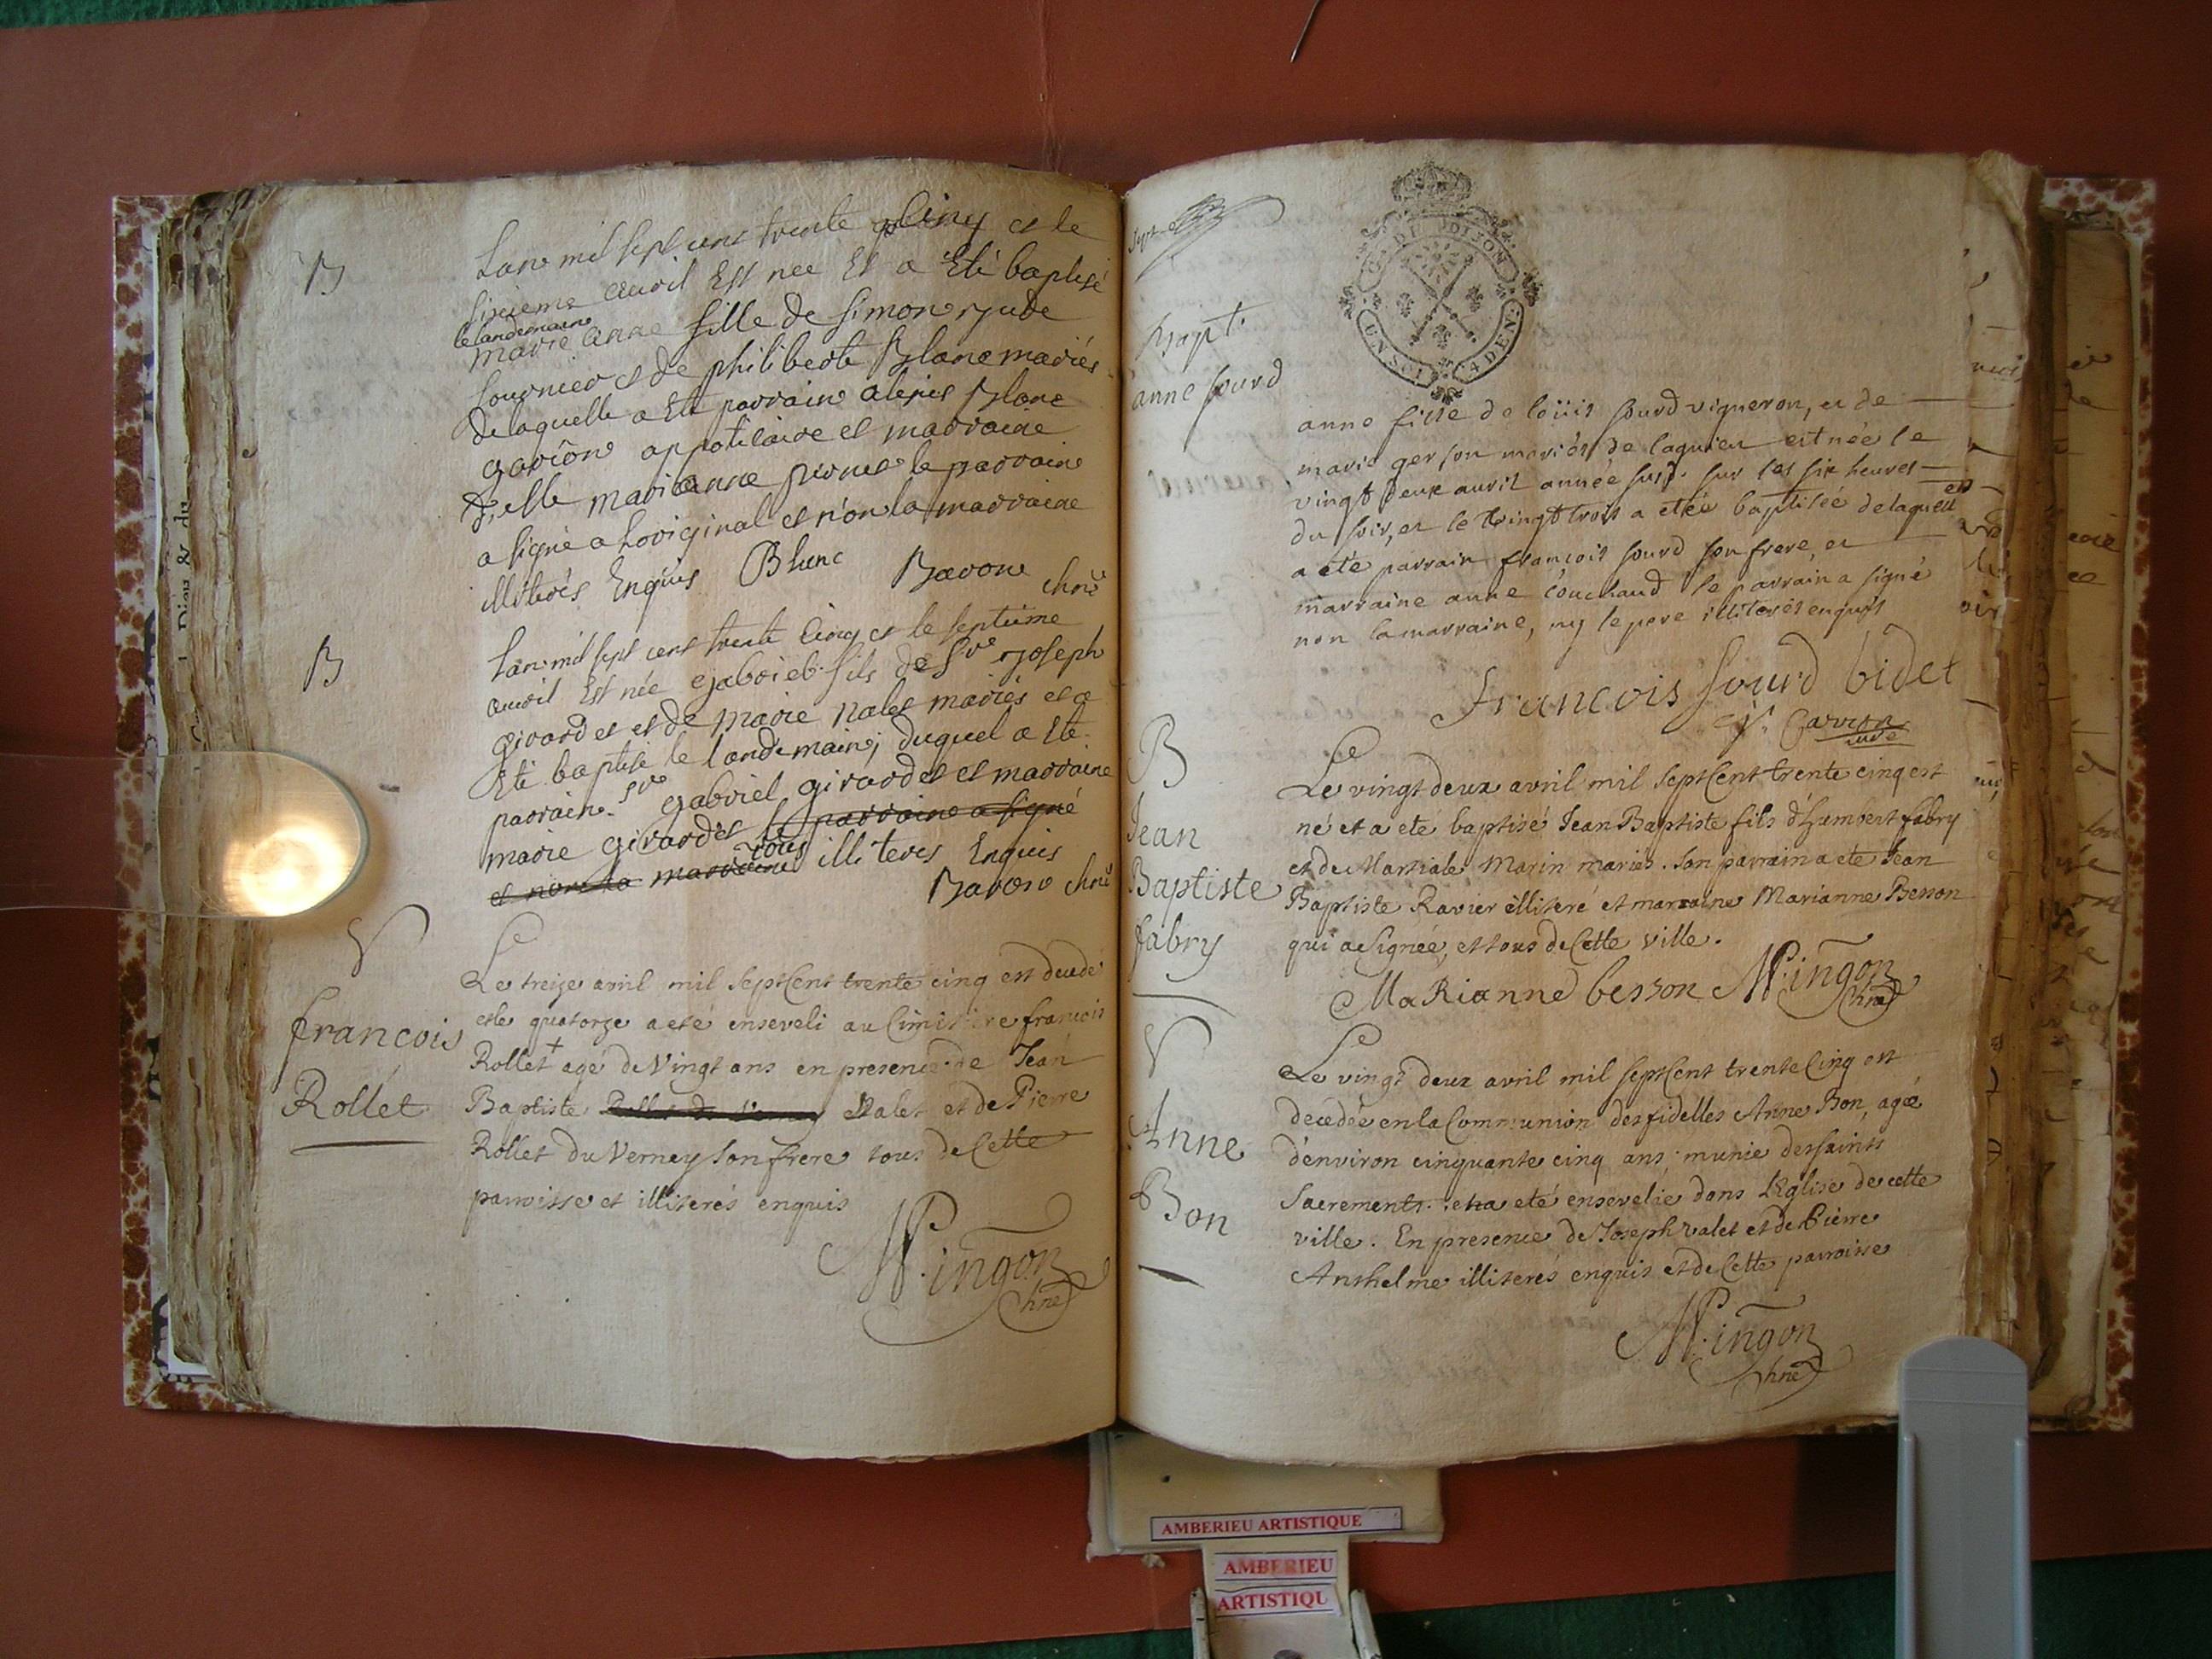 B
Lan mil sept cent trente Cinq et le
sixieme avril Est nee Et a Eté baptisé
le landemain
marie anne fille de simon jude
fournier et de philiberte Blanc mariés
delaquelle a Eté parrain alexis Blanc
garcon appoticaire et marraine
delle marianne le parrain
a signé a Loriginal et non la marraine
illiterés Enquis Blanc Baron chne
B
Lan mil sept cent trente Cinq et le septieme
avril Est née gabriel fils de Sr joseph
girardet et de marie valet mariés et a
Eté baptisé le landemain, duquel a Eté
parrain Sr gabriel girardet et marraine
marie girardet le parrain a signé
et non la marraine tous illiteres Enquis
Baron chne
François
Rollet
Le treize avril mil septCent trente cinq est decedé
et le quatorze a eté enseveli au Cimitiere francois
Rollet + agé de Vingt ans en presence de Jean
Baptiste Valet et de Pierre
Rollet du Verney son frere tous de Cette
paroisse et illiterés enquis
Mingon
chne
G. DE DIJON
UN SOL 4 DEN.
Bapt.
anne sourd
anne fille de loüis sourd vigneron, et de
marie gerson mariés de lagnieu est née le
vingt deux avril année susd. sur les six heures
du soir, et le vingt trois a eté baptisée delaquelle
a eté parrain françois sourd son frere, et
marraine anne couchaud le parrain a signé
non la marraine, ny le pere illiterés enquis
francois sourd bidet
curé
B
Jean
Baptiste
fabry
Le vingt deux avril mil septCent trente cinq est
né et a eté baptisé Jean Baptiste fils d'humbert fabry
et de Martiale Marin mariés. Son parrain a eté Jean
Baptiste Ravier illiteré et marraine Marianne Besson
qui a Signée, et tous de Cette ville.
MaRianne besson Mingon
chne
Anne
Bon
Le vingt deux avril mil septCent trente Cinq est
decedée en la Communion des fidelles Anne Bon, agée
d'environ cinquante cinq ans munie des saints
Sacrements. et a eté ensevelie dans L'Eglise de cette
ville. En presence de Joseph valet et de Pierre
Anthelme illiterés enquis et de Cette paroisse
Mingon
chne
AMBERIEU ARTISTIQUE
AMBERIEU
ARTISTIQU